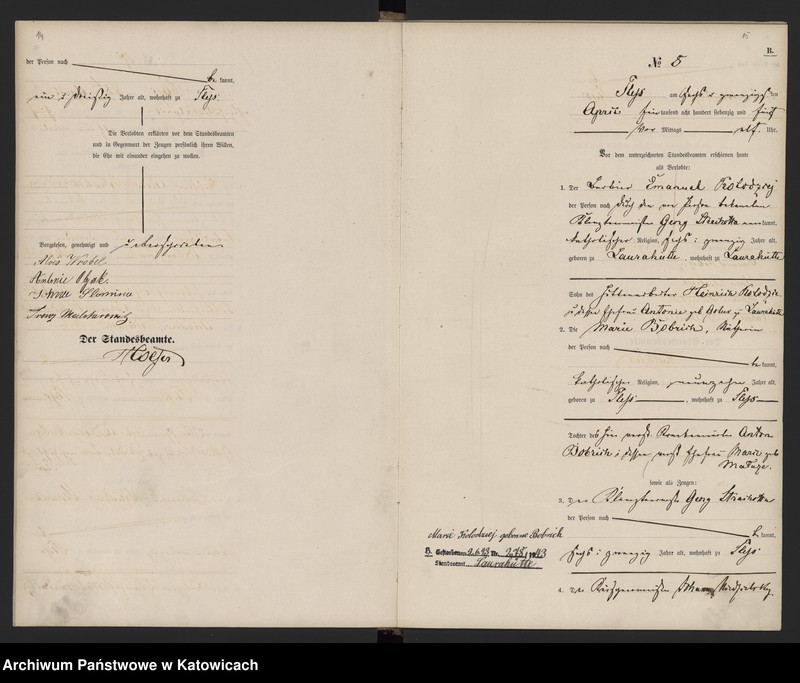 14
der Person nach
be kannt,
ein u dreißig Jahre alt, wohnhaft zu Pleß.
Die Verlobten erklärten vor dem Standesbeamten
und in Gegenwart der Zeugen persönlich ihren Willen,
die Ehe mit einander eingehen zu wollen.
Vorgelesen, genehmigt und unterschrieben
Alois Wrobel
Antonie
Franz
Der Standesbeamte.
15
B.
№ 5
Pleß am sechs u zwanzigsten
April eintausend acht hundert siebenzig und fünf
Vor Mittags elf Uhr.
Vor dem unterzeichneten Standesbeamten erschienen heute
als Verlobte:
1. Der Barbier Emanuel Kolodziej
der Person nach durch den von Person bekannten
Klemptnermeister Georg anerkannt,
katholischer Religion, sechs u zwanzig Jahre alt,
geboren zu Laurahütte, wohnhaft zu Laurahütte
Sohn des Hüttenarbeiter Heinrich Kolodziej
u dessen Ehefrau Antonie geb zu Laurahütte
2. Die Marie Bobrich, Näherin
der Person nach
be kannt,
katholischer Religion, neunzehn Jahre alt,
geboren zu Pleß, wohnhaft zu Pleß
Tochter des hier verst. Anton
Bobrich u dessen verst Ehefrau Marie geb
sowie als Zeugen:
3. Der Klemptnermeister Georg
der Person nach
be kannt,
sechs u zwanzig Jahre alt, wohnhaft zu Pleß
4. Der Johann
Marie Kolodziej geborene Bobrich
H. Gestorben 2.6.43 Nr. 278/1943
Standesamt Laurahütte
Archiwum Państwowe w Katowicach